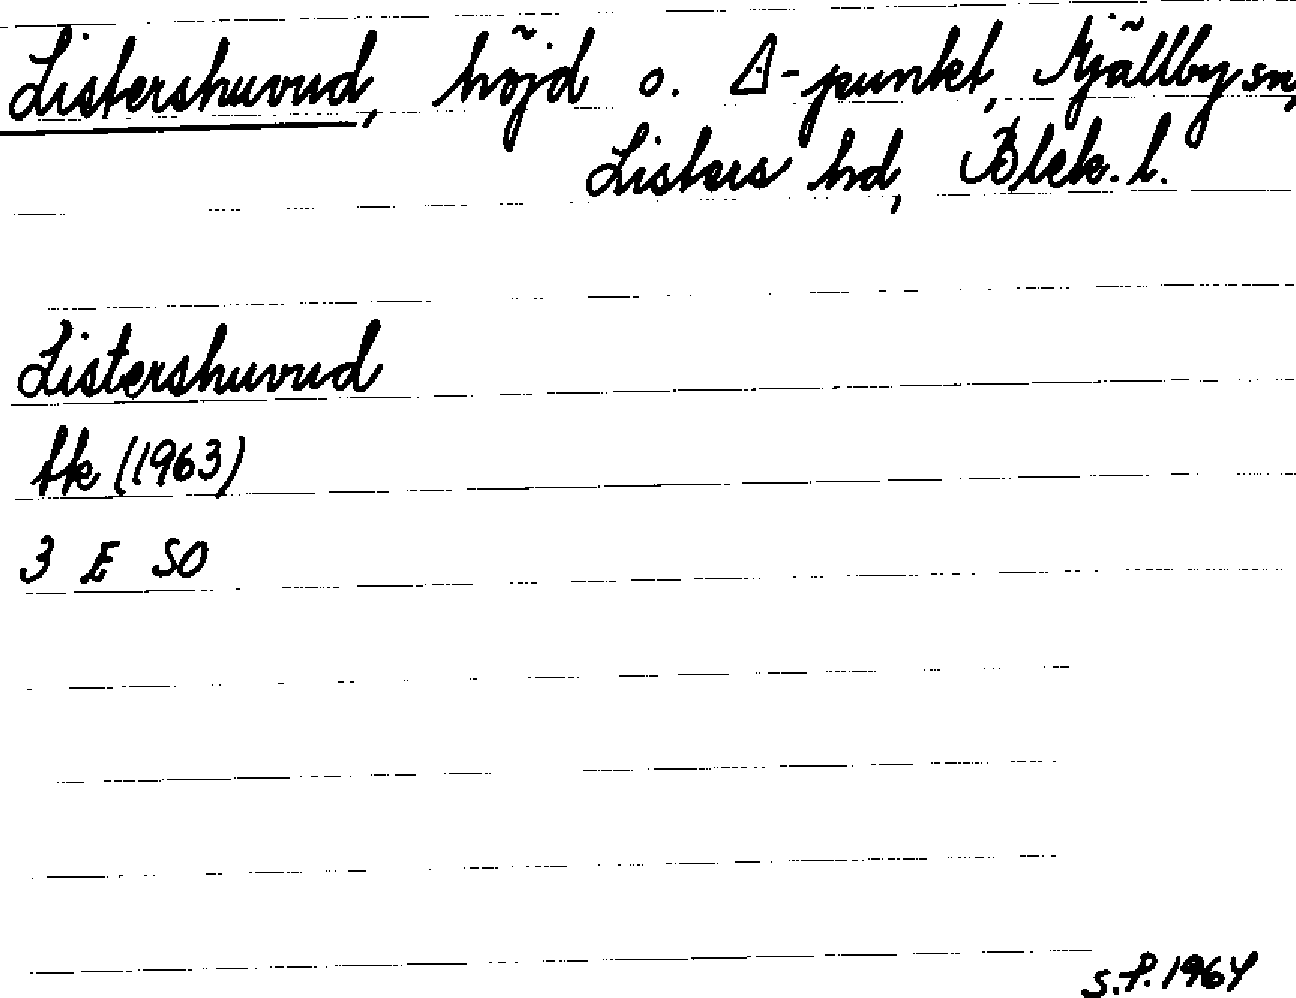 Listershuvud, höjd o. △-punkt, Mjällby sn,
Listers hd, Blek. l.
Listershuvud
fk (1963)
3 E SO
S.P. 1964